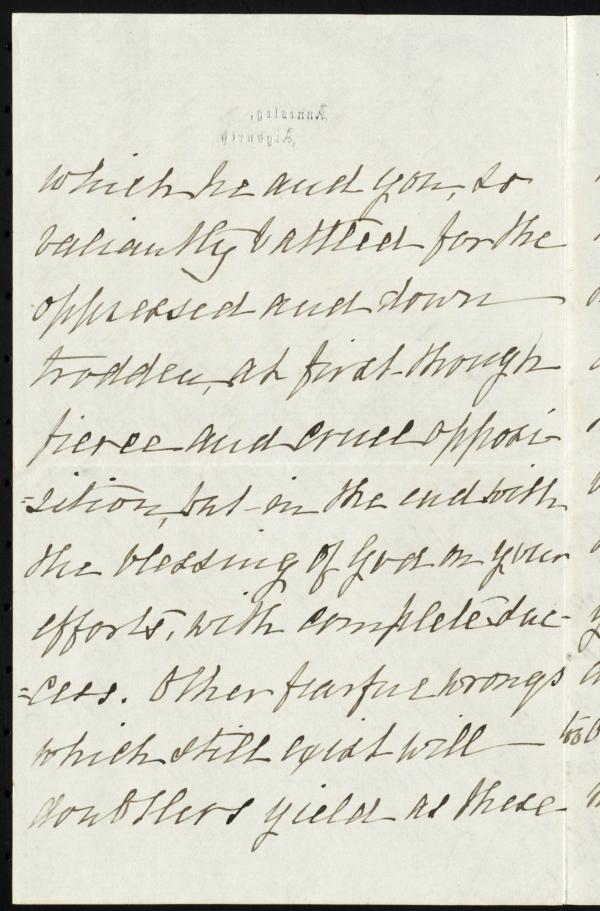 Annesley,
Aigburth
which he and you, so
valiantly battled for the
oppressed and down
trodden, at first though
fierce and cruel opposi-
=sition, but in the end with
the blessing of God on your
efforts, with complete suc-
=cess. Other fearful wrongs
which still exist will
doubtless yield as these